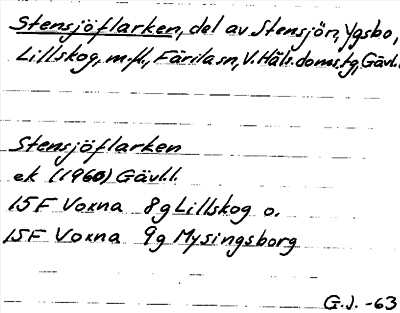 Stensjöflarken, del av Stensjön, Ygsbo,
Lillskog, m.fl., Färila sn, V. Häls. doms.tg, Gävl.
Stensjöflarken
ek (1960) Gävl.l.
15F Voxna 8g Lillskog o.
15F Voxna 9g Mysingsborg
G.J. -63